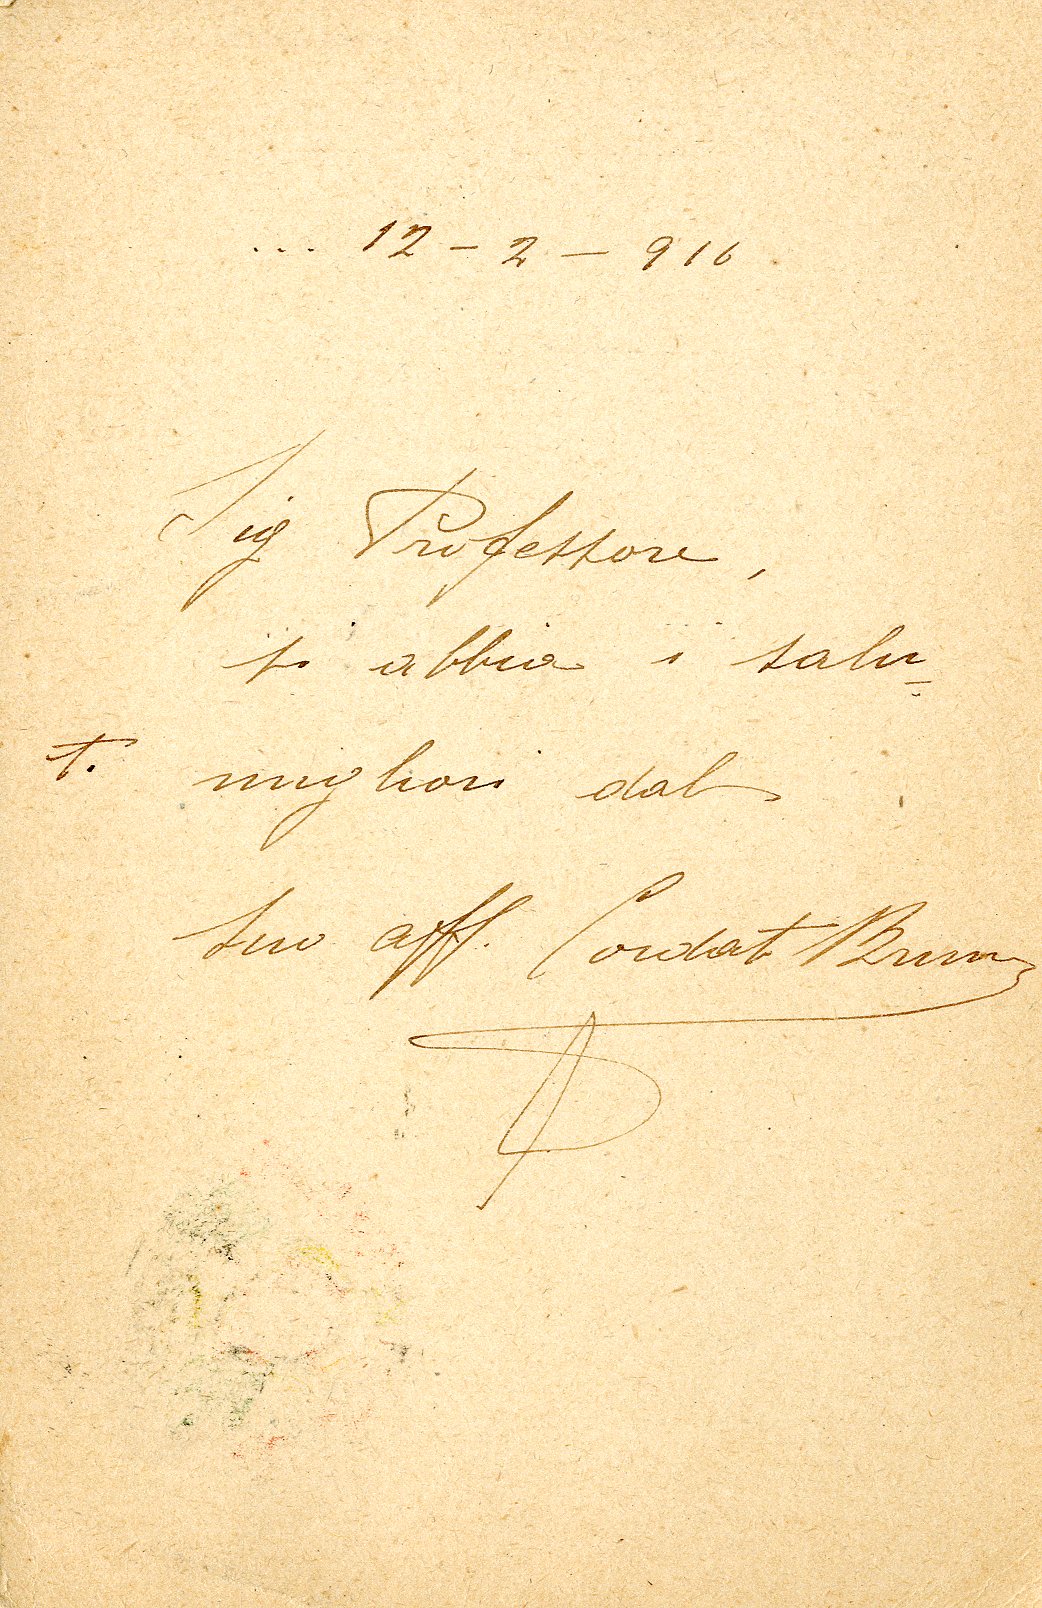 ... 12 - 2 - 916
Sig Professore,
si abbia i salu=
ti migliori dal
suo aff. Cordat Bruno